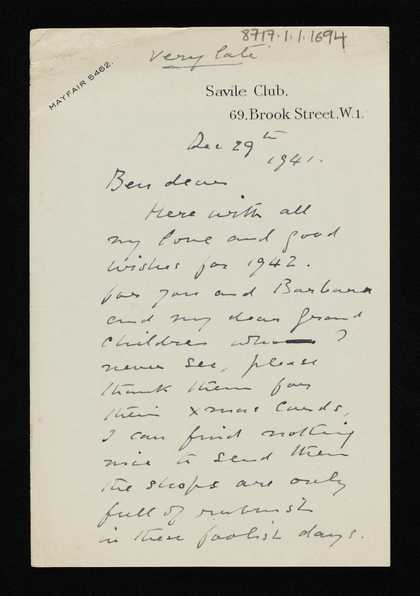 8717.1.1.1694
very late
MAYFAIR 5462.
Savile Club.
69. Brook Street. W.1.
Dec 29th
1941.
Ben dear
Here with all
my love and good
wishes for 1942.
for you and Barbara
and my dear grand
children who I
never see, please
thank them for
their xmas cards,
I can find nothing
nice to send them
the shops are only
full of rubbish
in these foolish days.